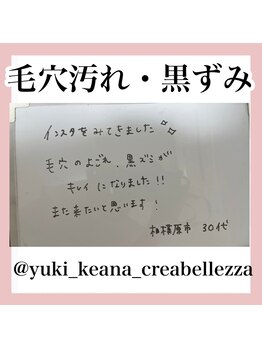 毛穴汚れ・黒ずみ
インスタをみてきました
毛穴のよごれ、黒ズミが
キレイになりました!!
また来たいと思います!
相模原市 30代
@yuki_keana_creabellezza